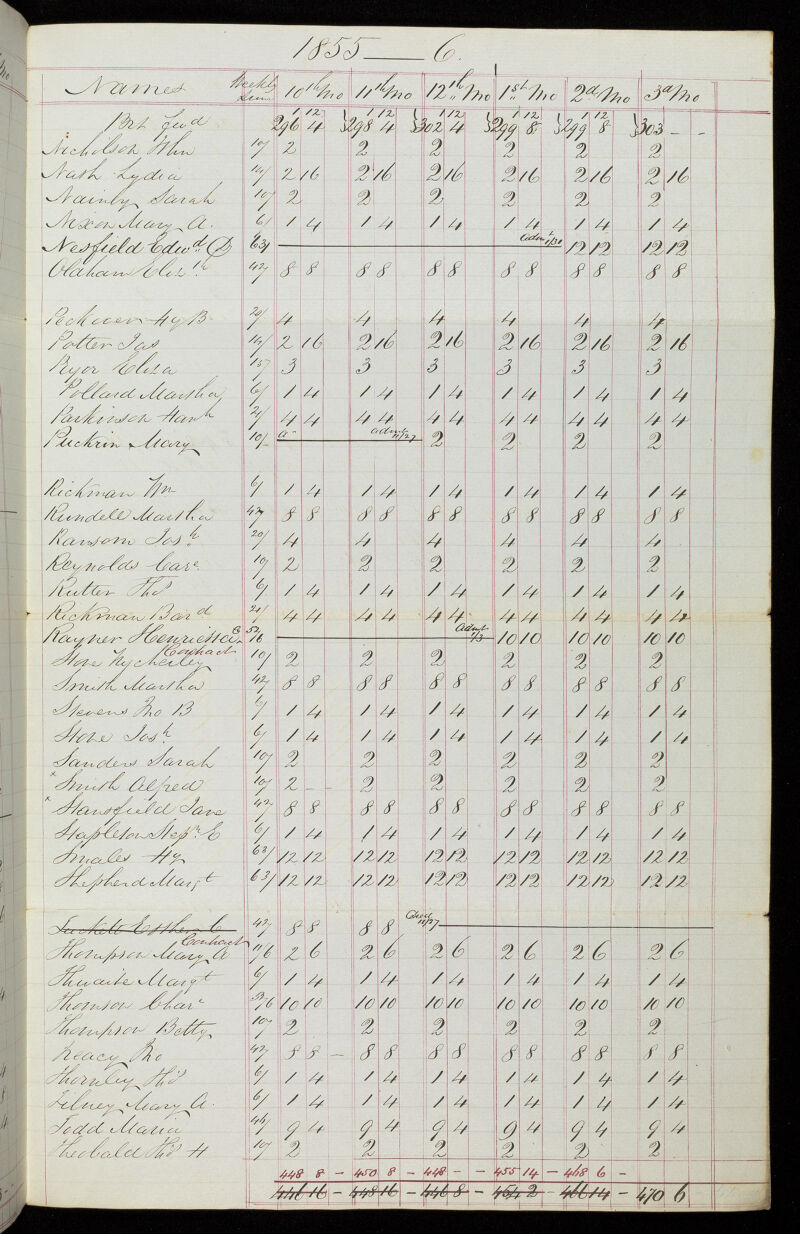 1855 — 6.
Names Weekly Sum 10th Mo 11th Mo 12th Mo 1st Mo 2d Mo 3d Mo
Brt fwd 296 4 298 4 302 4 299 8 299 8 303 - -
1 12 1 12 1 12 1 12 1 12
Nicholson Wm 10/ 2 2 2 2 2 2
Nash Lydia 14/ 2 16 2 16 2 16 2 16 2 16 2 16
Nainby Sarah 10/ 2 2 2 2 2 2
Nixon Mary A. 6/ 1 4 1 4 1 4 1 4 1 4 1 4
Nesfield Edwd 63/ — Admt 1/30 12 12 12 12
Oldham Elizth 42/ 8 8 8 8 8 8 8 8 8 8 8 8
Peckover Hy B 20/ 4 4 4 4 4 4
Potter Jas 14/ 2 16 2 16 2 16 2 16 2 16 2 16
Pryor Eliza 15/ 3 3 3 3 3 3
Pollard Martha 6/ 1 4 1 4 1 4 1 4 1 4 1 4
Parkinson Hanh 21/ 4 4 4 4 4 4 4 4 4 4 4 4
Puckrin Mary 10/ a — admt 11/27 2 2 2 2
Rickman Wm 6/ 1 4 1 4 1 4 1 4 1 4 1 4
Rundell Martha 42/ 8 8 8 8 8 8 8 8 8 8 8 8
Ransom Josh 20/ 4 4 4 4 4 4
Reynolds Care 10/ 2 2 2 2 2 2
Rutter Thos 6/ 1 4 1 4 1 4 1 4 1 4 1 4
Rickman Bard 21/ 4 4 4 4 4 4 4 4 4 4 4 4
Rayner Henrietta C 52/ — Admt 1/3 10 10 10 10 10 10
Contract
Stove Wycherley 10/ 2 2 2 2 2 2
Smith Martha 42/ 8 8 8 8 8 8 8 8 8 8 8 8
Stevens Jno B 6/ 1 4 1 4 1 4 1 4 1 4 1 4
Stove Josh 6/ 1 4 1 4 1 4 1 4 1 4 1 4
Sanders Sarah 10/ 2 2 2 2 2 2
x Smith Alfred 10/ 2 - - 2 2 2 2 2
x Stansfield Jane 42/ 8 8 8 8 8 8 8 8 8 8 8 8
Stapleton Stepn E 6/ 1 4 1 4 1 4 1 4 1 4 1 4
Smales Hy 63/ 12 12 12 12 12 12 12 12 12 12 12 12
Shepherd Margt 63/ 12 12 12 12 12 12 12 12 12 12 12 12
Tuckett Esther C 42/ 8 8 8 8 Died 11/27 —
Contract
Thompson Mary A 11/6 2 6 2 6 2 6 2 6 2 6 2 6
Thwaite Margt 6/ 1 4 1 4 1 4 1 4 1 4 1 4
Thomson Char 52/6 10 10 10 10 10 10 10 10 10 10 10 10
Thompson Betty 10/ 2 2 2 2 2 2
Treacy Jno 42/ 8 8 - 8 8 8 8 8 8 8 8 8 8
Thornley Thos 6/ 1 4 1 4 1 4 1 4 1 4 1 4
Tilney Mary A. 6/ 1 4 1 4 1 4 1 4 1 4 1 4
Todd Maria 46/ 9 4 9 4 9 4 9 4 9 4 9 4
Theobald Thos H 10/ 2 2 2 2 2 2
448 8 - 450 8 - 448 - - 455 14 - 468 6 -
446 16 - 448 16 - 446 8 - 454 2 - 466 14 - 470 6